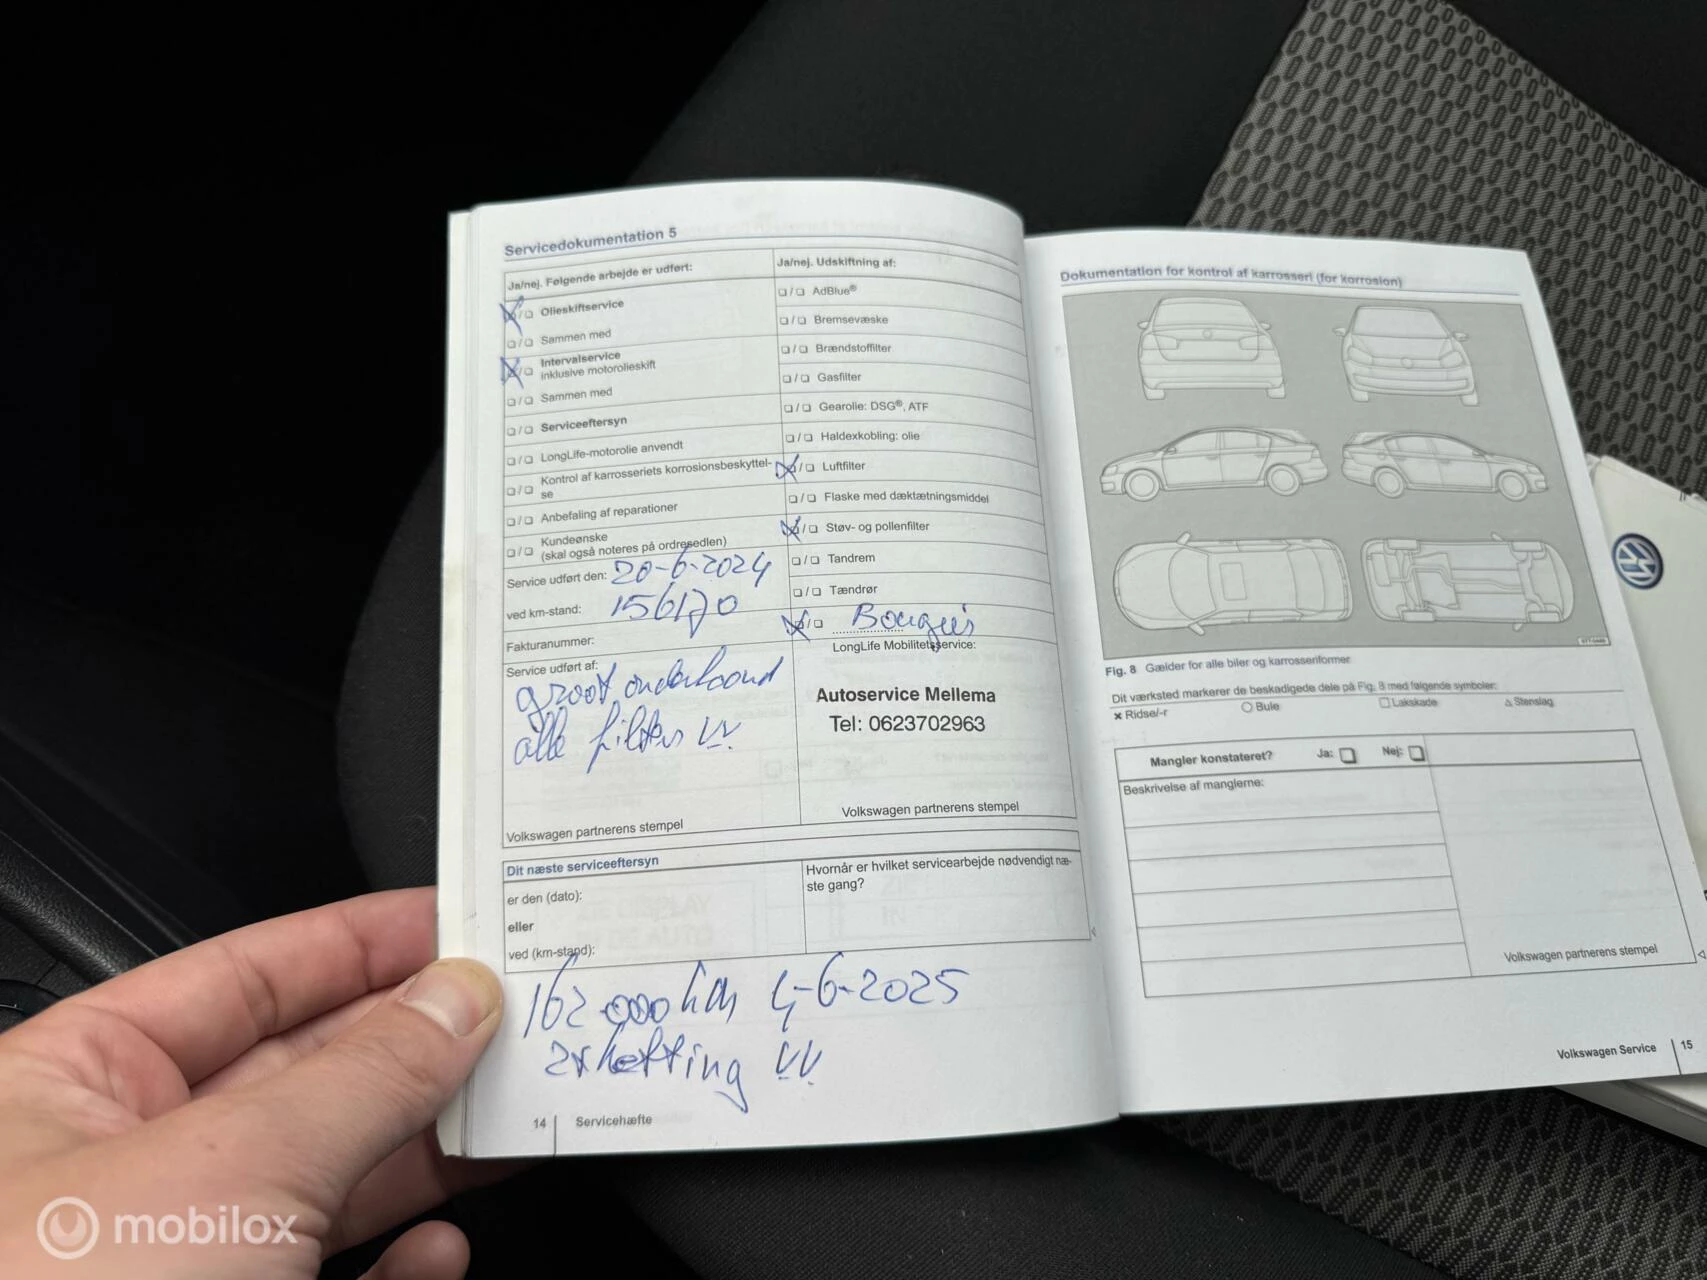 Servicedokumentation 5
Ja/nej. Følgende arbejde er udført:
☒/❏ Olieskiftservice
❏/❏ Sammen med
☒/❏ Intervalservice
inklusive motorolieskift
❏/❏ Sammen med
❏/❏ Serviceeftersyn
❏/❏ LongLife-motorolie anvendt
❏/❏ Kontrol af karrosseriets korrosionsbeskyttel-
se
❏/❏ Anbefaling af reparationer
❏/❏ Kundeønske
(skal også noteres på ordresedlen)
Service udført den: 20-6-2024
ved km-stand: 156170
Fakturanummer:
Service udført af:
groot onderhoud
alle filters
Volkswagen partnerens stempel
Ja/nej. Udskiftning af:
❏/❏ AdBlue®
❏/❏ Bremsevæske
❏/❏ Brændstoffilter
❏/❏ Gasfilter
❏/❏ Gearolie: DSG®, ATF
❏/❏ Haldexkobling: olie
☒/❏ Luftfilter
❏/❏ Flaske med dæktætningsmiddel
☒/❏ Støv- og pollenfilter
❏/❏ Tandrem
❏/❏ Tændrør
☒/❏ Bougies
LongLife Mobilitetsservice:
Autoservice Mellema
Tel: 0623702963
Volkswagen partnerens stempel
Dit næste serviceeftersyn
er den (dato):
eller
ved (km-stand):
Hvornår er hvilket servicearbejde nødvendigt næ-
ste gang?
162.000 km 4-6-2025
14 Servicehæfte
Dokumentation for kontrol af karrosseri (for korrosion)
Fig. 8 Gælder for alle biler og karrosseriformer
Dit værksted markerer de beskadigede dele på Fig. 8 med følgende symboler:
× Ridse/-r ○ Bule □ Lakskade △ Stenslag
Mangler konstateret? Ja: ❏ Nej: ❏
Beskrivelse af manglerne:
Volkswagen partnerens stempel
Volkswagen Service 15
mobilox